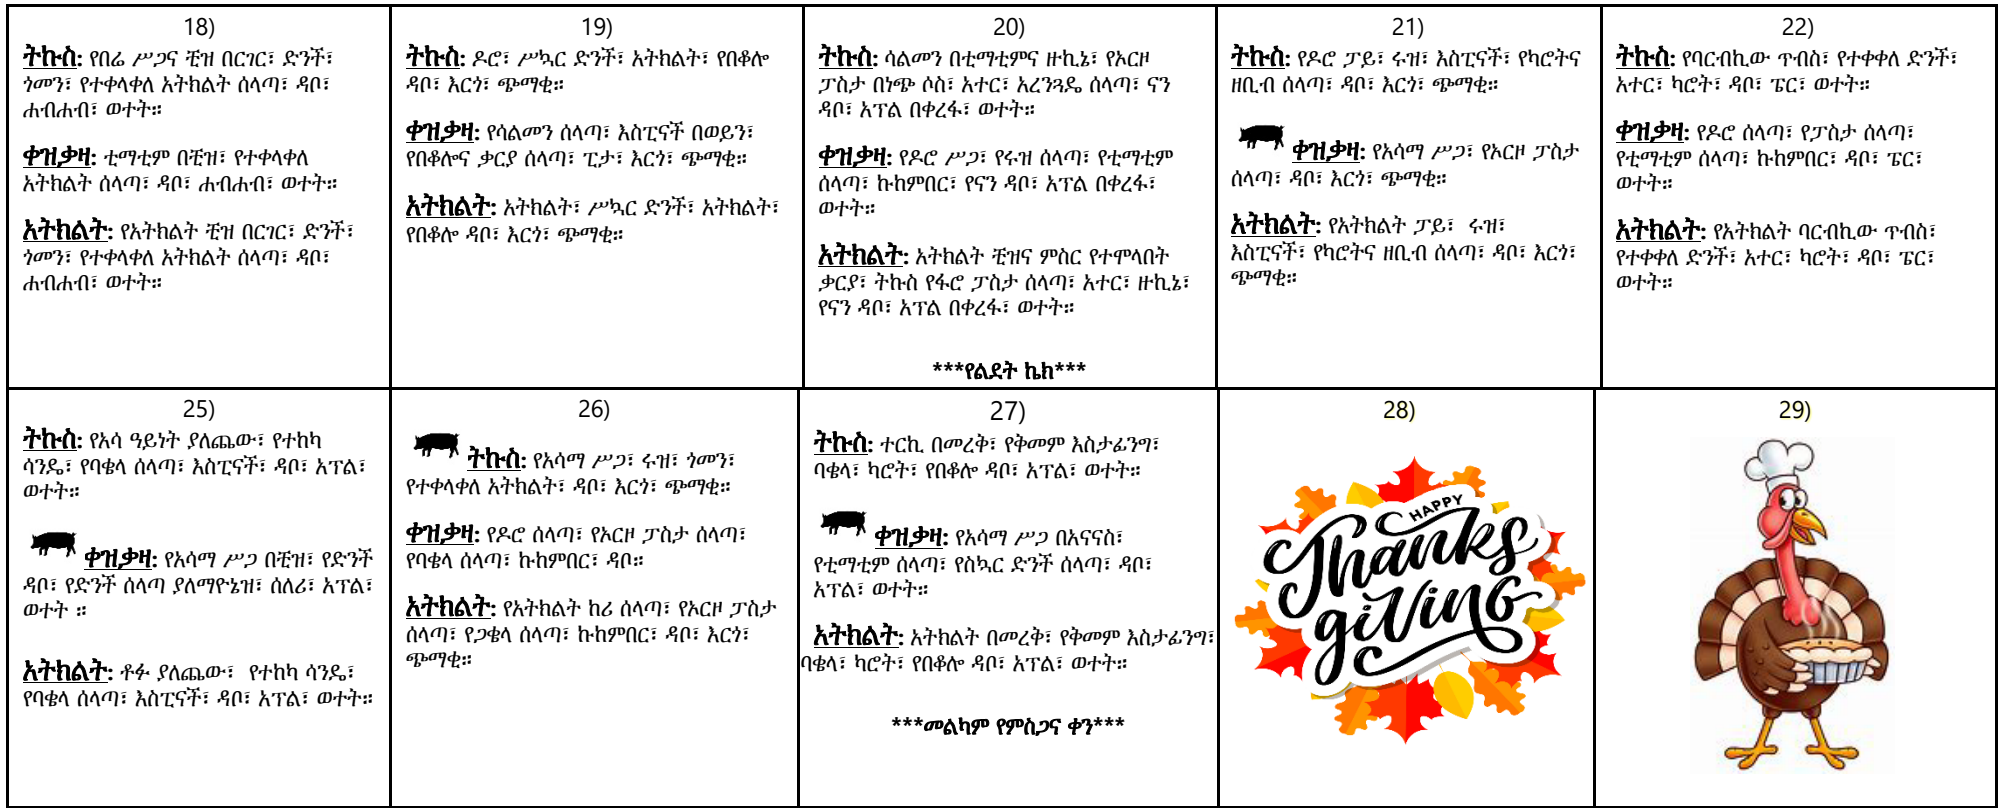 18)
ትኩስ: የበሬ ሥጋና ቺዝ በርገር፣ ድንች፣
ጎመን፣ የተቀላቀለ አትክልት ሰላጣ፣ ዳቦ፣
ሐብሐብ፣ ወተት።
ቀዝቃዛ: ቲማቲም በቺዝ፣ የተቀላቀለ
አትክልት ሰላጣ፣ ዳቦ፣ ሐብሐብ፣ ወተት።
አትክልት: የአትክልት ቺዝ በርገር፣ ድንች፣
ጎመን፣ የተቀላቀለ አትክልት ሰላጣ፣ ዳቦ፣
ሐብሐብ፣ ወተት።
19)
ትኩስ: ዶሮ፣ ሥኳር ድንች፣ አትክልት፣ የበቆሎ
ዳቦ፣ እርጎ፣ ጭማቂ።
ቀዝቃዛ: የሳልመን ሰላጣ፣ እስፒናች በወይን፣
የበቆሎና ቃርያ ሰላጣ፣ ፒታ፣ እርጎ፣ ጭማቂ።
አትክልት: አትክልት፣ ሥኳር ድንች፣ አትክልት፣
የበቆሎ ዳቦ፣ እርጎ፣ ጭማቂ።
20)
ትኩስ: ሳልመን በቲማቲምና ዙኪኔ፣ የኦርዞ
ፓስታ በነጭ ሶስ፣ አተር፣ አረንጓዴ ሰላጣ፣ ናን
ዳቦ፣ አፕል በቀረፋ፣ ወተት።
ቀዝቃዛ: የዶሮ ሥጋ፣ የሩዝ ሰላጣ፣ የቲማቲም
ሰላጣ፣ ኩከምበር፣ የናን ዳቦ፣ አፕል በቀረፋ፣
ወተት።
አትክልት: አትክልት ቺዝና ምስር የተሞላበት
ቃርያ፣ ትኩስ የፋሮ ፓስታ ሰላጣ፣ አተር፣ ዙኪኔ፣
የናን ዳቦ፣ አፕል በቀረፋ፣ ወተት።
***የልደት ኬክ***
21)
ትኩስ: የዶሮ ፓይ፣ ሩዝ፣ እስፒናች፣ የካሮትና
ዘቢብ ሰላጣ፣ ዳቦ፣ እርጎ፣ ጭማቂ።
ቀዝቃዛ: የአሳማ ሥጋ፣ የኦርዞ ፓስታ
ሰላጣ፣ ዳቦ፣ እርጎ፣ ጭማቂ።
አትክልት: የአትክልት ፓይ፣ ሩዝ፣
እስፒናች፣ የካሮትና ዘቢብ ሰላጣ፣ ዳቦ፣ እርጎ፣
ጭማቂ።
22)
ትኩስ: የባርብኪው ጥብስ፣ የተቀቀለ ድንች፣
አተር፣ ካሮት፣ ዳቦ፣ ፔር፣ ወተት።
ቀዝቃዛ: የዶሮ ሰላጣ፣ የፓስታ ሰላጣ፣
የቲማቲም ሰላጣ፣ ኩከምበር፣ ዳቦ፣ ፔር፣
ወተት።
አትክልት: የአትክልት ባርብኪው ጥብስ፣
የተቀቀለ ድንች፣ አተር፣ ካሮት፣ ዳቦ፣ ፔር፣
ወተት።
25)
ትኩስ: የአሳ ዓይነት ያለጨው፣ የተከካ
ሳንዴ፣ የባቄላ ሰላጣ፣ እስፒናች፣ ዳቦ፣ አፕል፣
ወተት።
ቀዝቃዛ: የአሳማ ሥጋ በቺዝ፣ የድንች
ዳቦ፣ የድንች ሰላጣ ያለማዮኔዝ፣ ሰለሪ፣ አፕል፣
ወተት ።
አትክልት: ቶፉ ያለጨው፣ የተከካ ሳንዴ፣
የባቄላ ሰላጣ፣ እስፒናች፣ ዳቦ፣ አፕል፣ ወተት።
26)
ትኩስ: የአሳማ ሥጋ፣ ሩዝ፣ ጎመን፣
የተቀላቀለ አትክልት፣ ዳቦ፣ እርጎ፣ ጭማቂ።
ቀዝቃዛ: የዶሮ ሰላጣ፣ የኦርዞ ፓስታ ሰላጣ፣
የባቄላ ሰላጣ፣ ኩከምበር፣ ዳቦ።
አትክልት: የአትክልት ከሪ ሰላጣ፣ የኦርዞ ፓስታ
ሰላጣ፣ የጋቄላ ሰላጣ፣ ኩከምበር፣ ዳቦ፣ እርጎ፣
ጭማቂ።
27)
ትኩስ: ተርኪ በመረቅ፣ የቅመም እስታፊንግ፣
ባቄላ፣ ካሮት፣ የበቆሎ ዳቦ፣ አፕል፣ ወተት።
ቀዝቃዛ: የአሳማ ሥጋ በአናናስ፣
የቲማቲም ሰላጣ፣ የስኳር ድንች ሰላጣ፣ ዳቦ፣
አፕል፣ ወተት።
አትክልት: አትክልት በመረቅ፣ የቅመም እስታፊንግ፣
ባቄላ፣ ካሮት፣ የበቆሎ ዳቦ፣ አፕል፣ ወተት።
***መልካም የምስጋና ቀን***
28)
HAPPY
Thanks
giving
29)